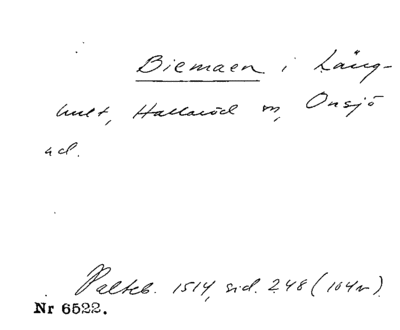 Biemaen i Läng-
hult, Hallaröd sn, Onsjö
hd.
Palteb. 1514, sid. 248 (104v).
Nr 6522.